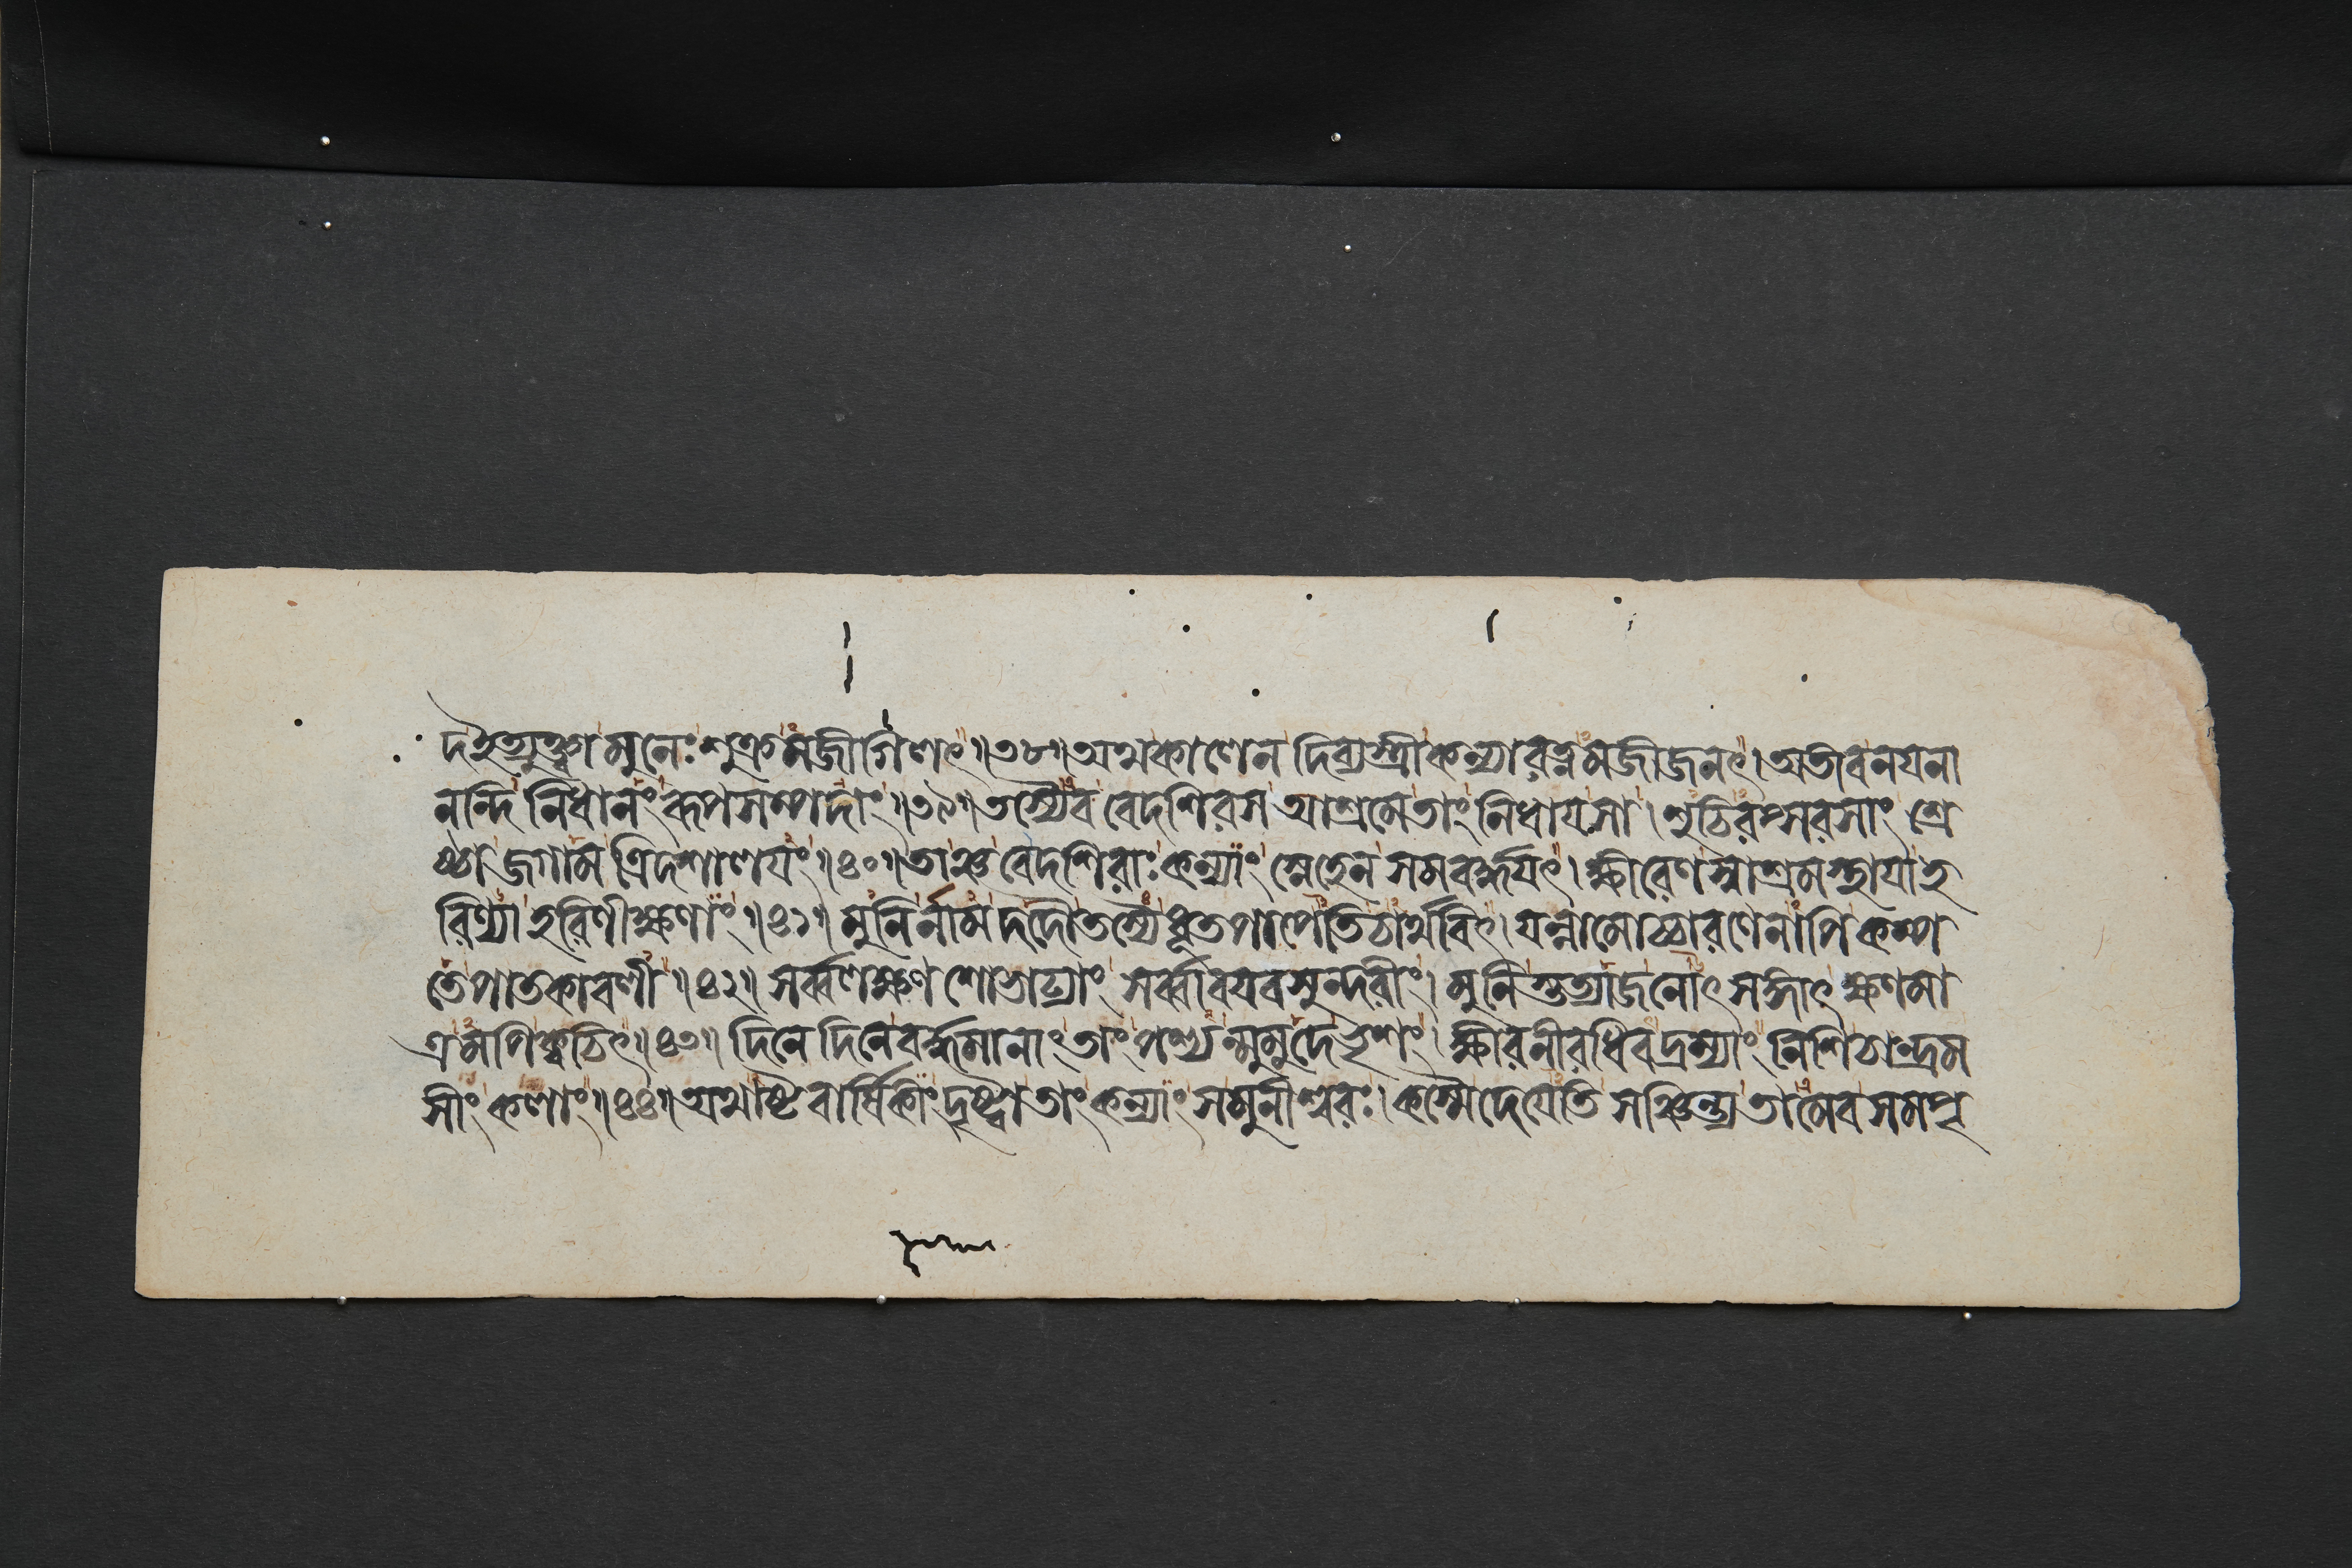 দহৈত্যুক্ত্বা মুনেঃ শুক্রমজীগিলৎ॥৩৮॥অথকালেন দিব্যস্ত্রীকন্যারত্নমজীজনৎ।অতীবনযনা
নন্দি নিধানং রূপসম্পদাং॥৩৯॥তস্যৈব বেদশিরস আশ্রমেতাং নিধাযসা।শুচিরপ্সরসাং শ্রে
ষ্ঠা জগাম ত্রিদশালযং॥৪০॥তাঞ্চ বেদশিরাঃ কন্যাং স্নেহেন সমবর্দ্ধযৎ।ক্ষীরেণস্বাশ্রমস্থাযা হ
রিণ্যা হরিণীক্ষণাং॥৪১॥ মুনির্নাম দদৌতস্যৈ ধূতপাপেতিচার্থবিৎ।যন্নামোচ্চারণেনাপি কম্প
তে পাতকাবলী॥৪২॥ সর্ব্বলক্ষণ শোভাঢ্যাং সর্ব্বাবযবসুন্দরীং।মুনিস্তত্যাজনোৎসঙ্গাৎ ক্ষণমা
ত্রমপি ক্বচিৎ॥৪৩॥ দিনে দিনে বর্দ্ধমানাং তাং পশ্যন্মুমুদে ভৃশং।ক্ষীরনীরধিবদ্রম্যাং নিশিচান্দ্রম
সীং কলাং॥৪৪॥অথাষ্টবার্ষিকীং দৃষ্ট্বা তাং কন্যাং সমুনীশ্বরঃ।কস্মৈদেযেতি সঞ্চিন্ত্য তামেব সমপৃ